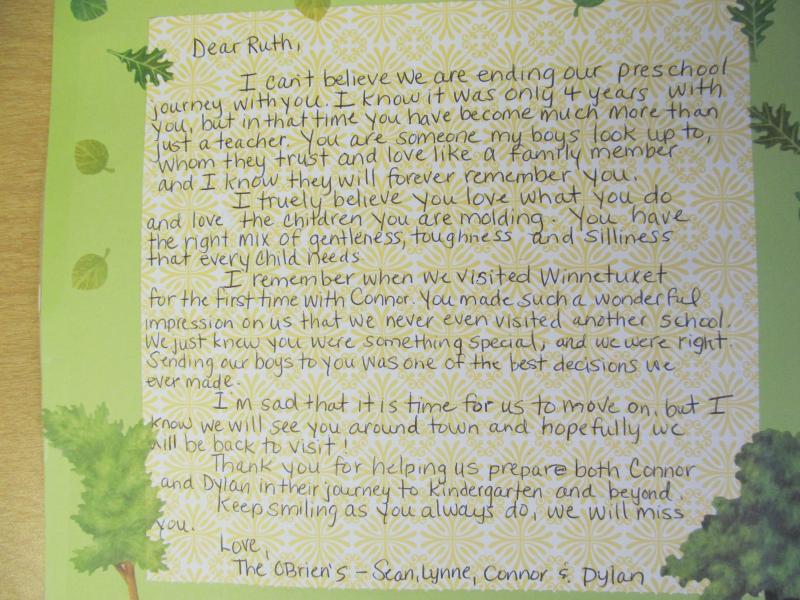 Dear Ruth,
I can't believe we are ending our preschool
journey with you. I know it was only 4 years with
you, but in that time you have become much more than
just a teacher. You are someone my boys look up to,
whom they trust and love like a family member
and I know they will forever remember you.
I truely believe you love what you do
and love the children you are molding. You have
the right mix of gentleness, toughness and silliness
that every child needs
I remember when we visited Winnetuxet
for the first time with Connor. You made such a wonderful
impression on us that we never even visited another school.
We just knew you were something special, and we were right.
Sending our boys to you was one of the best decisions we
ever made.
I'm sad that it is time for us to move on, but I
know we will see you around town and hopefully we
will be back to visit!
Thank you for helping us prepare both Connor
and Dylan in their journey to kindergarten and beyond.
Keep smiling as you always do, we will miss
you.
Love,
The OBrien's - Sean, Lynne, Connor & Dylan